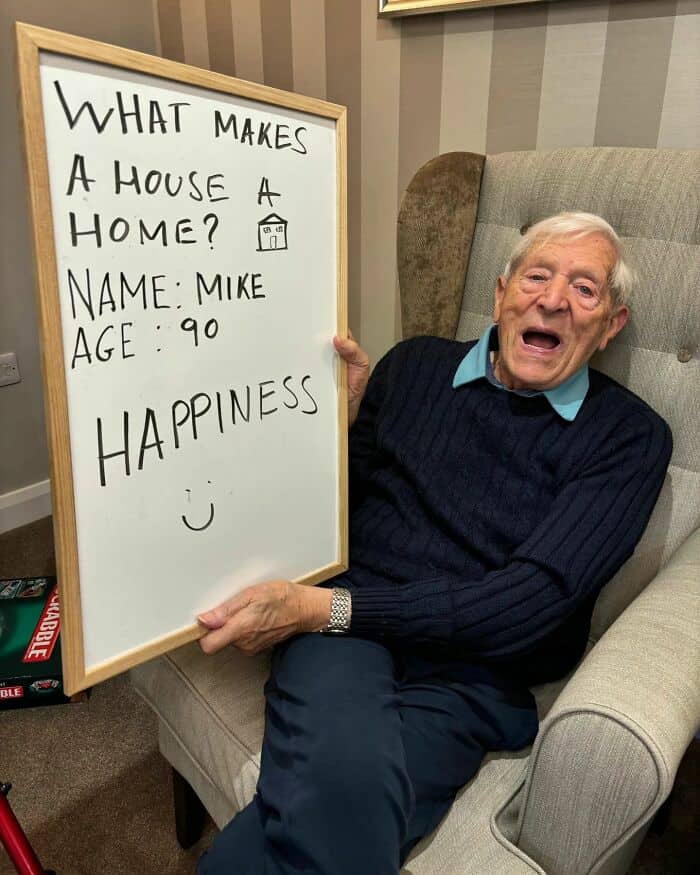 WHAT MAKES
A HOUSE A
HOME?
NAME: MIKE
AGE: 90
HAPPINESS
SCRABBLE